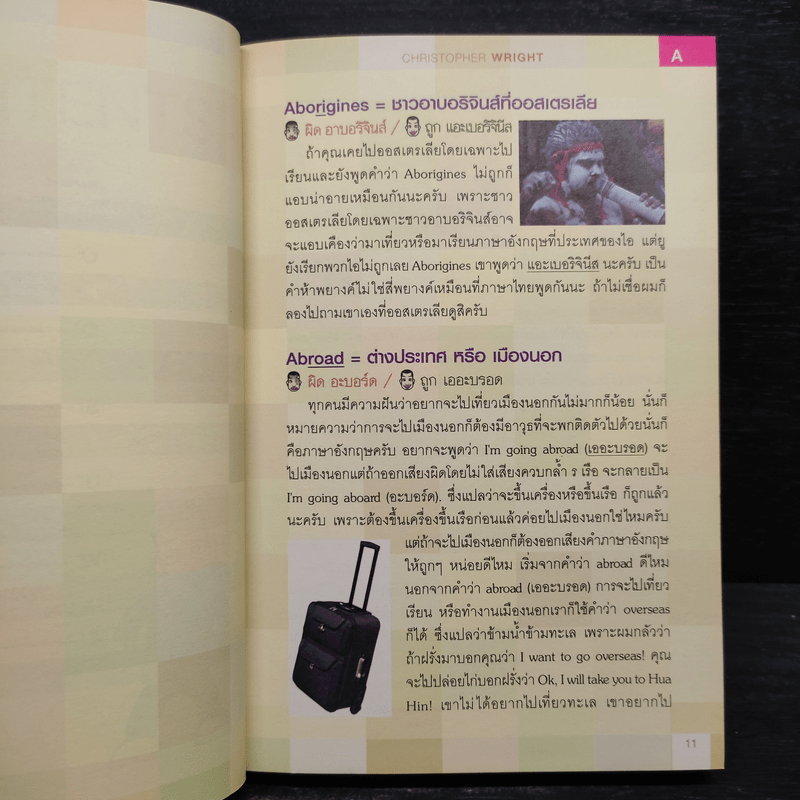 CHRISTOPHER WRIGHT
A
Aborigines = ชาวอาบอริจินส์ที่ออสเตรเลีย
ผิด อาบอริจินส์ / ถูก แอะเบอริจินีส
ถ้าคุณเคยไปออสเตรเลียโดยเฉพาะไป
เรียนและยังพูดคำว่า Aborigines ไม่ถูกก็
แอบน่าอายเหมือนกันนะครับ เพราะชาว
ออสเตรเลียโดยเฉพาะชาวอาบอริจินส์อาจ
จะแอบเคืองว่ามาเที่ยวหรือมาเรียนภาษาอังกฤษที่ประเทศของไอ แต่ยู
ยังเรียกพวกไอไม่ถูกเลย Aborigines เขาพูดว่า แอะเบอริจินีส นะครับ เป็น
คำห้าพยางค์ไม่ใช่สี่พยางค์เหมือนที่ภาษาไทยพูดกันนะ ถ้าไม่เชื่อผมก็
ลองไปถามเขาเองที่ออสเตรเลียดูสิครับ
Abroad = ต่างประเทศ หรือ เมืองนอก
ผิด อะบอร์ด / ถูก เออะบรอด
ทุกคนมีความฝันว่าอยากจะไปเที่ยวเมืองนอกกันไม่มากก็น้อย นั่นก็
หมายความว่าการจะไปเมืองนอกก็ต้องมีอาวุธที่จะพกติดตัวไปด้วยนั่นก็
คือภาษาอังกฤษครับ อยากจะพูดว่า I'm going abroad (เออะบรอด) จะ
ไปเมืองนอกแต่ถ้าออกเสียงผิดโดยไม่ใส่เสียงควบกล้ำ ร เรือ จะกลายเป็น
I'm going aboard (อะบอร์ด). ซึ่งแปลว่าจะขึ้นเครื่องหรือขึ้นเรือ ก็ถูกแล้ว
นะครับ เพราะต้องขึ้นเครื่องขึ้นเรือก่อนแล้วค่อยไปเมืองนอกใช่ไหมครับ
แต่ถ้าจะไปเมืองนอกก็ต้องออกเสียงคำภาษาอังกฤษ
ให้ถูกๆ หน่อยดีไหม เริ่มจากคำว่า abroad ดีไหม
นอกจากคำว่า abroad (เออะบรอด) การจะไปเที่ยว
เรียน หรือทำงานเมืองนอกเราก็ใช้คำว่า overseas
ก็ได้ ซึ่งแปลว่าข้ามน้ำข้ามทะเล เพราะผมกลัวว่า
ถ้าฝรั่งมาบอกคุณว่า I want to go overseas! คุณ
จะไปปล่อยไก่บอกฝรั่งว่า Ok, I will take you to Hua
Hin! เขาไม่ได้อยากไปเที่ยวทะเล เขาอยากไป
11